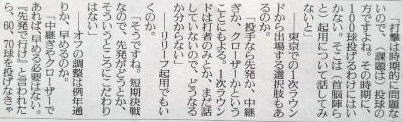 「打撃は時期的に問題な
いので、(課題は)投球の
方ですよね。その時期に、
100球投げるわけにはい
かない。そこは(首脳陣ら
と)起用について話してみ
ないと」
東京での1次ラウン
ドから出場する選択肢もあ
る。
「投手なら先発か、中継
ぎか、クローザーかという
ことにもよる。1次ラウン
ドは打者のみとか、まだ話
していないので、どうなる
か分からない」
――リリーフ起用でもい
くのか。
「そうですね。短期決戦
なので、先発がどうとか、
そういうところにこだわり
はない」
――オフの調整は例年通
りか、早めるのか。
「中継ぎやクローザーで
あれば、早める必要はない。
『先発で行け』と言われた
ら、60、70球を投げなきゃ